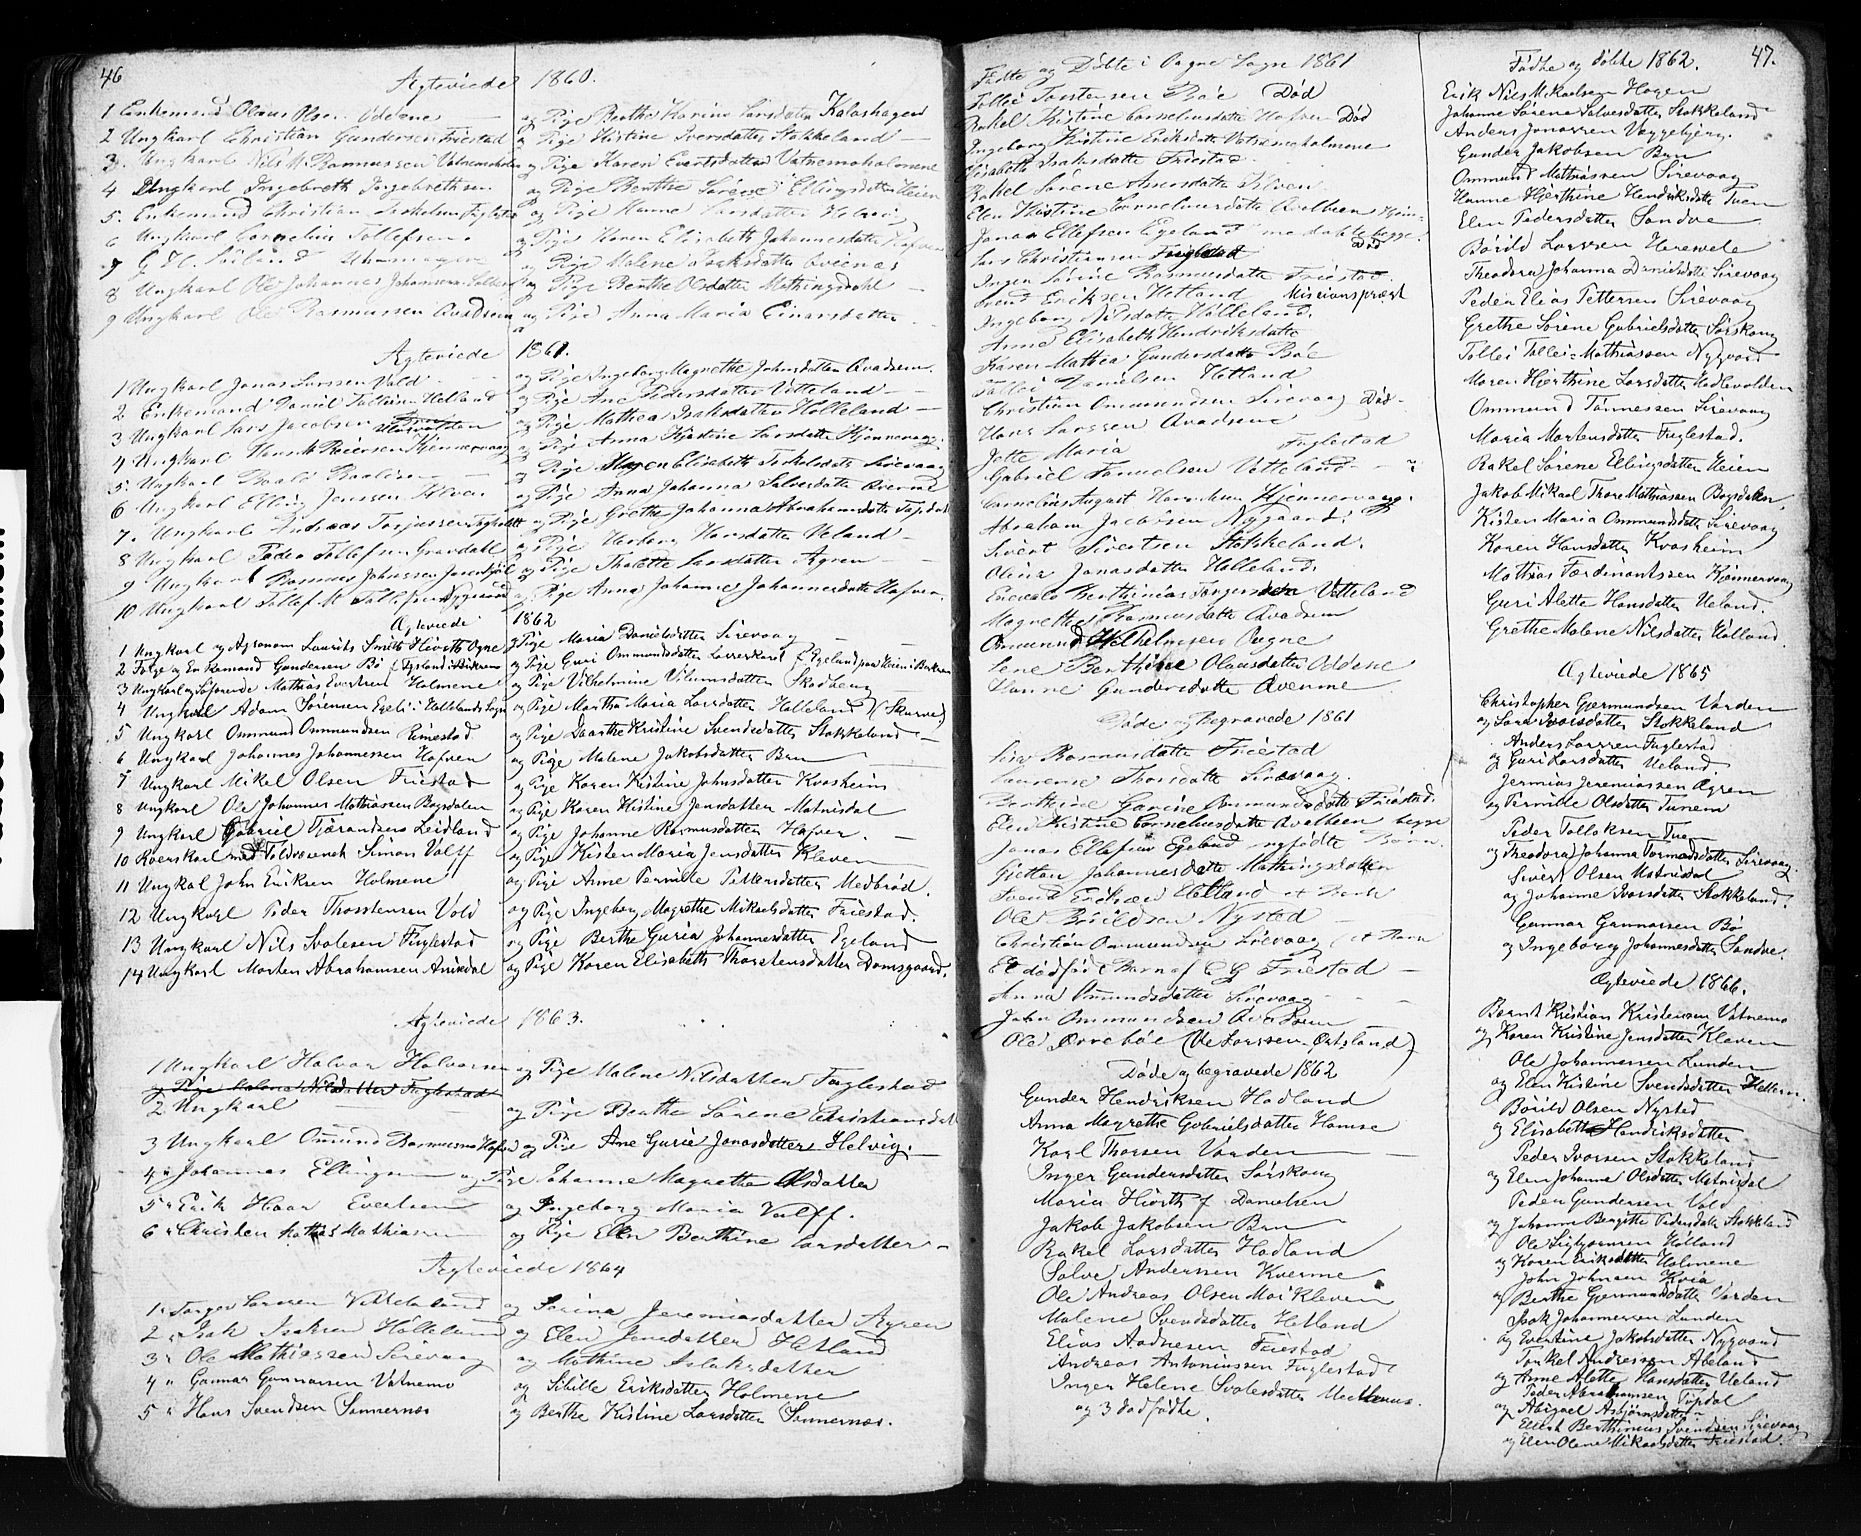 46
Ægteviede 1860.
1 Enkemand Olaus Olsen Oddene og Pige Berthe Karine Larsdatter Kalashagen
2 Ungkarl Christian Gundersen Friestad og Pige Kistine Iversdatter Stokkeland
3. Ungkarl Nils M. Rasmussen Vatnemoholmene og Pige Karen Evertsdatter Vatnemoholmene
4 Ungkarl Ingebreth Ingebrethsen og Pige Berthe Sørene Ellingsdatter Heien
5. Enkemand Christian Fuglestad og Pige Hanne Larsdatter
6 Ungkarl Cornelius Tollefsen og Pige Karen Elisabeth Johannesdatter Hafven
7 og Pige Malene Isaksdatter
8 Ungkarl Ole Johannes Johansen og Pige Berthe Olsdatter Mathingsdahl
9 Ungkarl Ole Rasmussen Qvadsem og Pige Anna Maria Einarsdatter
Ægteviede 1861.
1 Ungkarl Jonas Larssen Vold og Pige Ingeborg Magrethe Johnsdatter Qvadsem.
2 Enkemand Daniel Tolleisen Hetland og Pige Ane Pedersdatter Vetteland
3 Ungkarl Lars Jacobsen og Pige Mathea Isaksdatter Holleland
4 Ungkarl Hans M. Reiersen Kjennervaag og Pige Anna Kjestine Larsdatter Kjennervaag
5. Ungkarl og Pige Maren Elisabeth Torkelsdatter Sirevaag
6 Ungkarl Elling Jenssen Kleven og Pige Anna Johanna Salvesdatter Qverme
7. Ungkarl Andreas Torjussen og Pige Grethe Johanna Abrahamsdatter
8 Ungkarl Peder Tollefsen Gravdahl og Pige Herborg Hansdatter Veland
9 Ungkarl Rasmus Johnssen og Pige Thalette Larsdatter Agren
10 Ungkarl Tollef M. Tollefsen Nygaard og Pige Anna Johanne Johannesdatter Hafven.
Ægteviede 1862
1 Ungkarl og Agronom Laurits Smith Hiorth Ogne og Pige Maria Danielsdatter Sirevaag
2 Enkemand Gundersen Bø og Pige Guri Ommundsdatter
3 Ungkarl og Søfarende Mathias Evertsen Holmene og Pige Vilhelmine Vilumsdatter Skadberg
4 Ungkarl Adam Sørensen Egeli i Hellelands Sogn og Pige Martha Maria Larsdatter Helleland (Skurve)
5 Ungkarl Ommund Ommundsen Rimestad og Pige Daarthe Kristine Svendsdatter Stokkeland
6 Ungkarl Johannes Johannessen Hafven og Pige Malene Jakobsdatter Bru
7 Ungkarl Mikel Olsen Friestad og Pige Karen Kistine Johnsdatter Kvasheim
8 Ungkarl Ole Johannes Mathiassen Bogsdalen og Pige Karen Kistine Jensdatter Matnisdal
9 Ungkarl Gabriel Tjørandsen Leidland og Pige Johanne Rasmusdatter Hafven.
10 Roerskarl med Toldvæsenet Simon Valff og Pige Kisten Maria Jensdatter Kleven
11 Ungkal John Eriksen Holmene og Pige Anne Pernille Pettersdatter Medbrød.
12 Ungkarl Peder Thorstensen Vold og Pige Ingeborg Magrethe Mikaelsdatter Friestad.
13 Ungkarl Nils Svalesen Fuglestad og Pige Berthe Guria Johannesdatter Egeland
14 Ungkarl Morten Abrahamsen Anisdal og Pige Karen Elisabeth Thorstensdatter Damsgaard.
Ægteviede 1863.
1 Ungkarl Halvar Halvorsen og Pige Malene Nilsdatter Fuglestad
og Pige Malene Nilsdatter Fuglestad
2 Ungkarl og Pige Berthe Sørene Christiansdat
3 Ungkarl Omund Rasmussen Hafven og Pige Ane Gurie Jonasdatter Helvig.
4 " Johannes Ellingsen og Pige Johanne Magrethe Olsdatter
5 " Erik Haar Evertsen og Ingeborg Maria Valff.
6 " Christen Mathias Mathiassen og Pige Elen Berthine Larsdatter
Ægteviede 1864
1 " Torger Larssen Vetteland og Serina Jeremiasdatter Agren
2 " Isak Isaksen Hølleland og Elen Jensdatter Hetland
3 " Ole Mathiassen Sirevaag og Mathine Aslaksdatter
4 " Gunnar Gunnarsen Vatnemo og Sibille Eriksdatter Holmene
5 " Hans Svendsen Sømmernæs og Berthe Kistine Larsdatter Sømmernæs.
Fødte og Døbte i Oogne Sogn 1861
Tollei Torstensen Bøe Død
Rakel Kistine Corneliusdatter Hafven Død
Ingeborg Kistine Eriksdatter Vatnemoholmene
Elisabeth Isaksdatter Friestad
Rakel Sørene Assersdatter
Elen Kistine Corneliusdatter Qvelleen
Jonas Ellefsen Egeland
Lars Christiansen Fuglestad Død
Inger Sørine Rasmusdatter Friestad.
Svend Eriksen Hetland Missionspræst
Ingeborg Nilsdatter Hølleland.
Anne Elisabeth Hendriksdatter
Karen Mathea Gundersdatter Bøe
Tollei Danielsen Hetland
Christian Ommundsen Sirevaag Død
Hans Larssen Qvadsem
Jette Maria Fuglestad
Gabriel Samuelsen Vetteland
Cornelius August Kjennervaag.
Abraham Jacobsen Nygaard.
Sivert Sivertsen Stokkeland.
Olina Jonasdatter Helleland.
Enevald Berthinius Torgersen Vetteland
Magrethe Rasmusdatter Qvadsem
Ommund Wilhelmsen Oogne
Lene Berthine Olausdatter Oddene
Hanne Gundersdatter Qverme
Døde og Begravede 1861
Siri Rasmusdatter Friestad
Thorsdatte Sirevaag.
Berthine Gurine Ommundsdatte Friestad.
Elen Kistine Corneliusdatte Qvelleen begge
Jonas Ellefsen Egeland nyfødte Børn.
Johannesdatte Mathingsdalen
Svend Eriksen Hetland et Barn
Ole Børildsen Nysted
Christian Ommundsen Sirevaag (et Barn
Et dødfødt Barn af C G Friestad
Anna Omundsdatter Sirevaag
John Ommundsen Qvadsem
Ole Ørrebøe (Ole Larssen Øtsland)
Døde og begravede 1862
Gunder Hendriksen Hadland
Anna Magrethe Gabrielsdatter Hamse
Karl Thorsen Varden
Inger Gundersdatter Sørskoug
Maria Hiorth f Danielsen
Jakob Jakobsen Bru
Rakel Larsdatter Hadland
Salve Anderssen Kverme
Ole Andreas Olsen Moi Kleven
Malene Svendsdatter Hetland
Elias Aadnesen Friestad
Andreas Antoniussen Fuglestad
Inger Helene Svalesdatter
og 3 dødfødte.
47.
Fødte og døbte 1862.
Erik Nils Mikaelsen Hagen
Johanne Sørene Salvesdatter Stokkeland
Anders Jonassen Veggebjerg.
Gunder Jakobsen Bru
Ommund Mathiassen Sirevaag
Hanne Hjerthine Hendriksdatte Tuen
Elen Pedersdatter Sandve
Børild Larssen Herevele
Theodora Johanna Danielsdatte Sirevaag
Peder Elias Pettersen Sirevaag
Grethe Sørene Gabrielsdatter Sørskoug
Tollei Tollei-Mathiassen Nygaard
Maren Hjerthine Larsdatter Hadlevolden
Ommund Tønnessen Sirevaag
Maria Mortensdatter Fuglestad.
Rakel Sørene Ellingsdatter Heien
Jakob Mikael Thore Mathiassen Bogsdalen
Kisten Maria Ommundsdatte Sirevaag
Karen Hansdatter Kvasheim
Mathias Ferdinantssen Kjønnervaag
Guri Alette Hansdatter Ueland.
Grethe Malene Nilsdatter Hølland
Ægteviede 1865
Christopher Gjermundsen Varden
og Sara Ivarsdatter Stokkeland
Anders Larssen Fuglestad
og Guri Larsdatter Ueland.
Jermias Jeremiassen Agren
og Pernille Olsdatter Tunem
Peder Tollaksen Tuen
og Theodora Johanna Tormodsdatter Sirevaag
Sivert Olsen Matnisdal
og Johanne Ivarsdatter Stokkeland.
Gunnar Gunnarsen Bø
og Ingeborg Johannesdatter Sandve.
Ægteviede 1866.
Bernt Kristian Kristensen Vatnemo
og Karen Kristine Jensdatter Kleven
Ole Johannessen Lunden
og Elen Kistine Svendsdatter Helleren.
Børild Olsen Nysted
og Elisabeth Hendriksdatter
Peder Ivarsen Stokkeland
og Elen Johanne Olsdatter Matnisdal
Peder Gundersen Vold
og Johanne Bergitte Pedersdatte Stokkeland
Ole Sigbjørnsen Hølland
og Karen Eriksdatter Holmene
John Johnsen Kvia
og Berthe Gjermundsdatter Varden
Isak Johannessen Lunden
og Evertine Jakobsdatter Nygaard
Torkel Andreasen Abeland
og Anne Alette Hansdatter Ueland
Peder Abrahamsen Topdal
og Abigael Asbjørnsdatter
Eilert Berthinius Svendsen Sirevaag
og Elen Olene Mikaelsdatter Friestad.